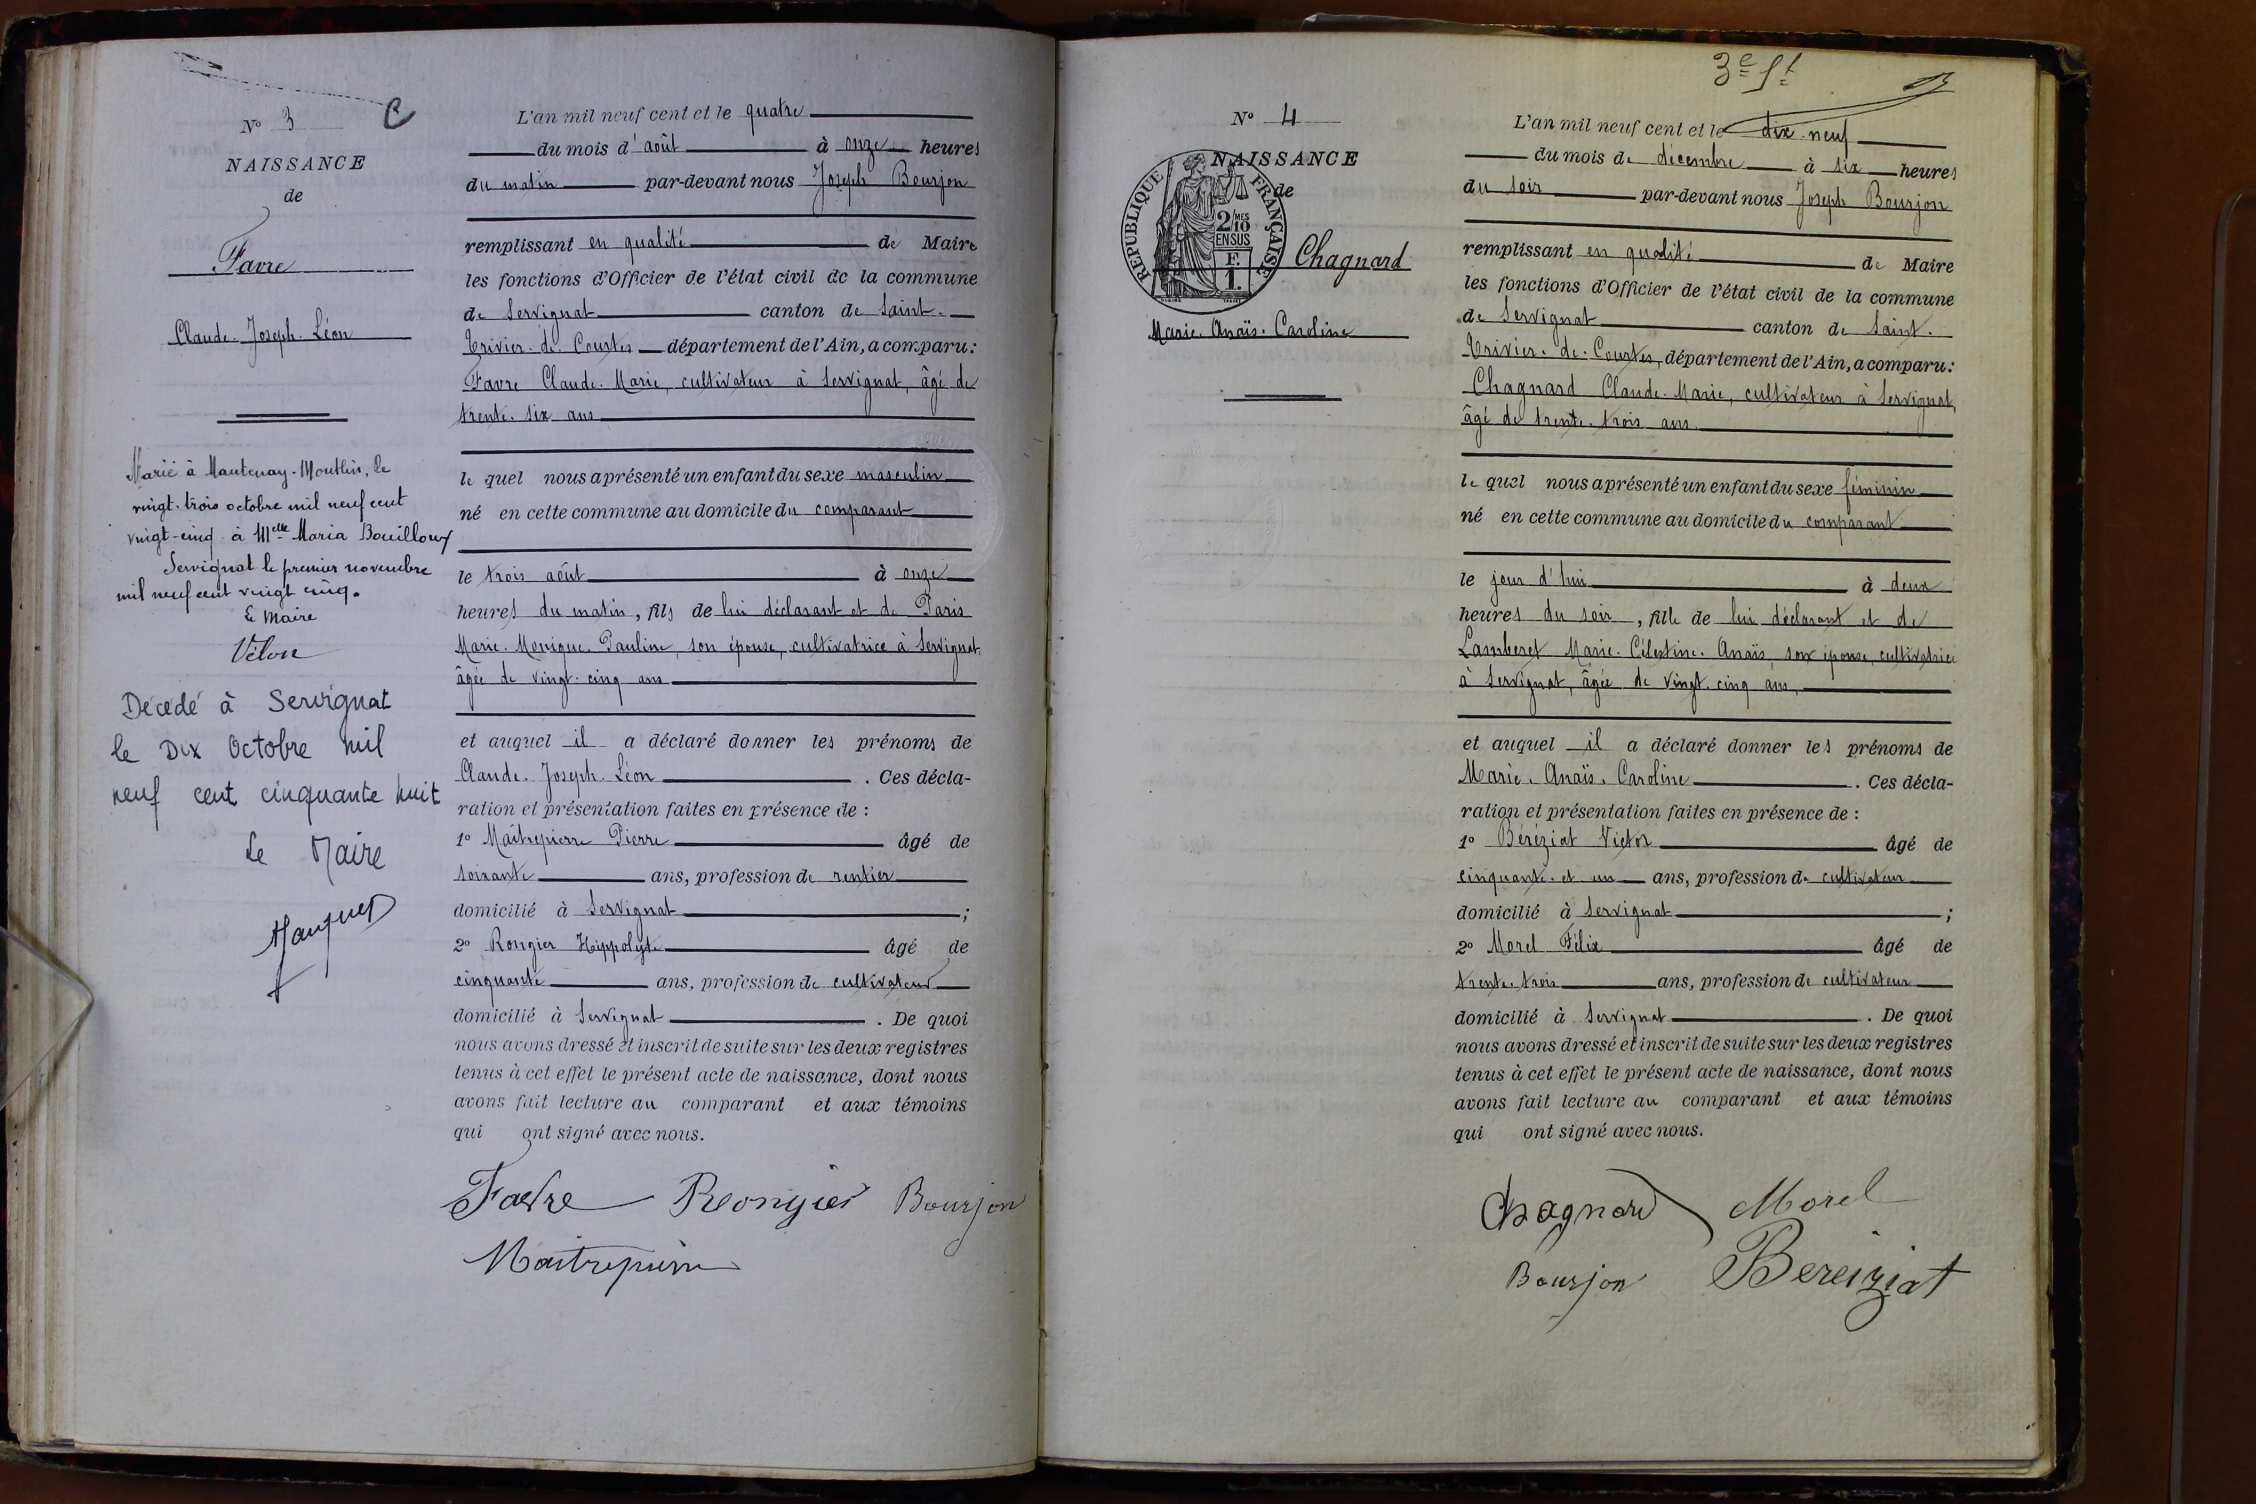 N° 3
C
NAISSANCE
de
Favre
Claude. Joseph. Léon
Marié à Mantenay-Montlin, le
vingt-trois octobre mil neuf cent
vingt-cinq à Melle Maria Bouilloux
Servignat le premier novembre
mil neuf cent vingt cinq.
Le Maire
Vélon
Décédé à Servignat
le Dix Octobre mil
neuf cent cinquante huit
Le Maire
L'an mil neuf cent et le quatre
du mois d'août à onze heures
du matin par-devant nous Joseph Bourjon
remplissant en qualité de Maire
les fonctions d'Officier de l'état civil de la commune
de Servignat canton de Saint.
Trivier. de. Courtes département de l'Ain, a comparu:
Favre Claude. Marie, cultivateur à Servignat, âgé de
trente. six ans
le quel nous a présenté un enfant du sexe masculin
né en cette commune au domicile du comparant
le trois août à onze
heures du matin, fils de lui déclarant et de Paris
Marie. Monique. Pauline, son épouse, cultivatrice à Servignat,
âgée de vingt. cinq ans
et auquel il a déclaré donner les prénoms de
Claude. Joseph. Léon. Ces décla-
ration et présentation faites en présence de :
1° Maîtrepierre Pierre âgé de
soixante ans, profession de rentier
domicilié à Servignat ;
2° Rongier Hippolyte âgé de
cinquante ans, profession de cultivateur
domicilié à Servignat. De quoi
nous avons dressé et inscrit de suite sur les deux registres
tenus à cet effet le présent acte de naissance, dont nous
avons fait lecture au comparant et aux témoins
qui ont signé avec nous.
Favre Rongier Bourjon
Maitrepierre
3e St
N° 4
NAISSANCE
de
RÉPUBLIQUE FRANÇAISE
2/10 MES
EN SUS
F.
1.
Chagnard
Marie. Anaïs. Caroline
L'an mil neuf cent et le dix-neuf
du mois de décembre à six heures
du soir par-devant nous Joseph Bourjon
remplissant en qualité de Maire
les fonctions d'Officier de l'état civil de la commune
de Servignat canton de Saint.
Trivier. de. Courtes, département de l'Ain, a comparu:
Chagnard Claude. Marie, cultivateur à Servignat,
âgé de trente. trois ans
le quel nous a présenté un enfant du sexe féminin
né en cette commune au domicile du comparant
le jour d'hui à deux
heures du soir, fille de lui déclarant et de
Lamberet Marie. Célestine. Anaïs, son épouse, cultivatrice
à Servignat, âgée de vingt. cinq ans,
et auquel il a déclaré donner les prénoms de
Marie. Anaïs. Caroline. Ces décla-
ration et présentation faites en présence de :
1° Béréziat Victor âgé de
cinquante. et. un ans, profession de cultivateur
domicilié à Servignat ;
2° Morel Félix âgé de
trente. trois ans, profession de cultivateur
domicilié à Servignat. De quoi
nous avons dressé et inscrit de suite sur les deux registres
tenus à cet effet le présent acte de naissance, dont nous
avons fait lecture au comparant et aux témoins
qui ont signé avec nous.
Chagnard Morel
Bourjon Bereiziat